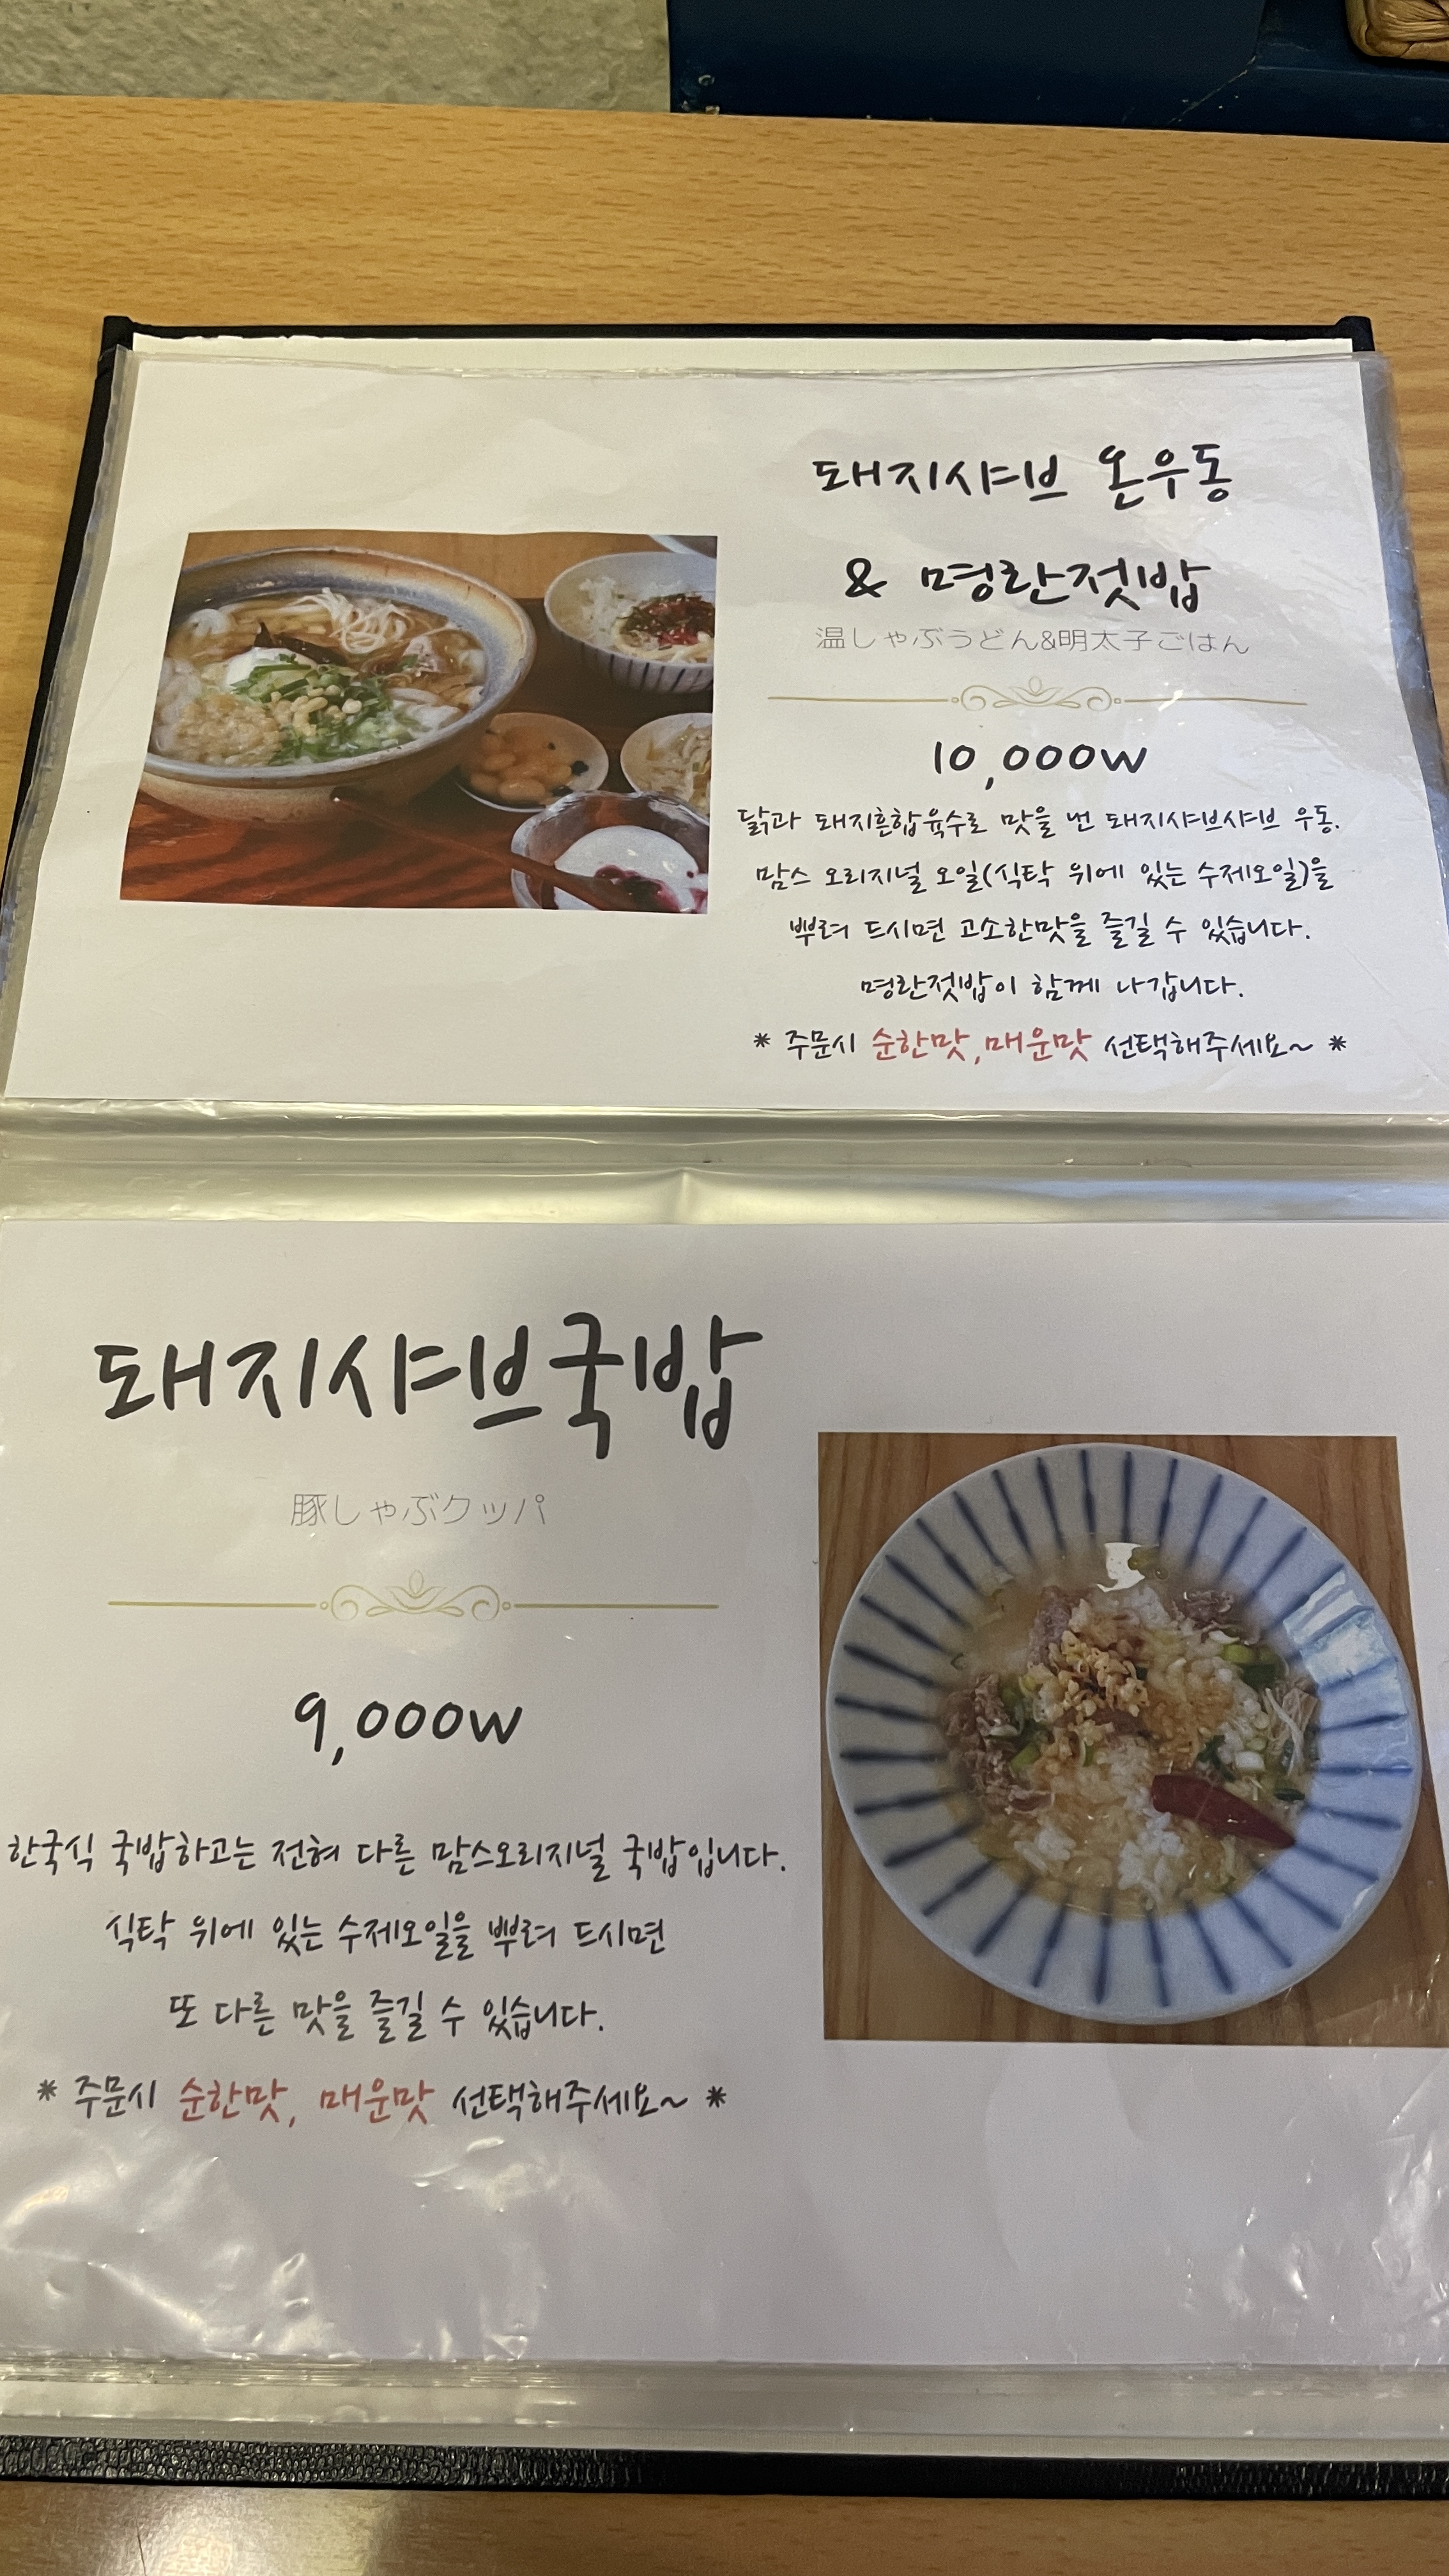 돼지샤브 온우동
& 명란젓밥
温しゃぶうどん&明太子ごはん
10,000w
닭과 돼지혼합육수로 맛을 낸 돼지샤브샤브 우동.
맘스 오리지널 오일(식탁 위에 있는 수제오일)을
뿌려 드시면 고소한맛을 즐길 수 있습니다.
명란젓밥이 함께 나갑니다.
* 주문시 순한맛,매운맛 선택해주세요~ *
돼지샤브국밥
豚しゃぶクッパ
9,000w
한국식 국밥하고는 전혀 다른 맘스오리지널 국밥입니다.
식탁 위에 있는 수제오일을 뿌려 드시면
또 다른 맛을 즐길 수 있습니다.
* 주문시 순한맛, 매운맛 선택해주세요~ *